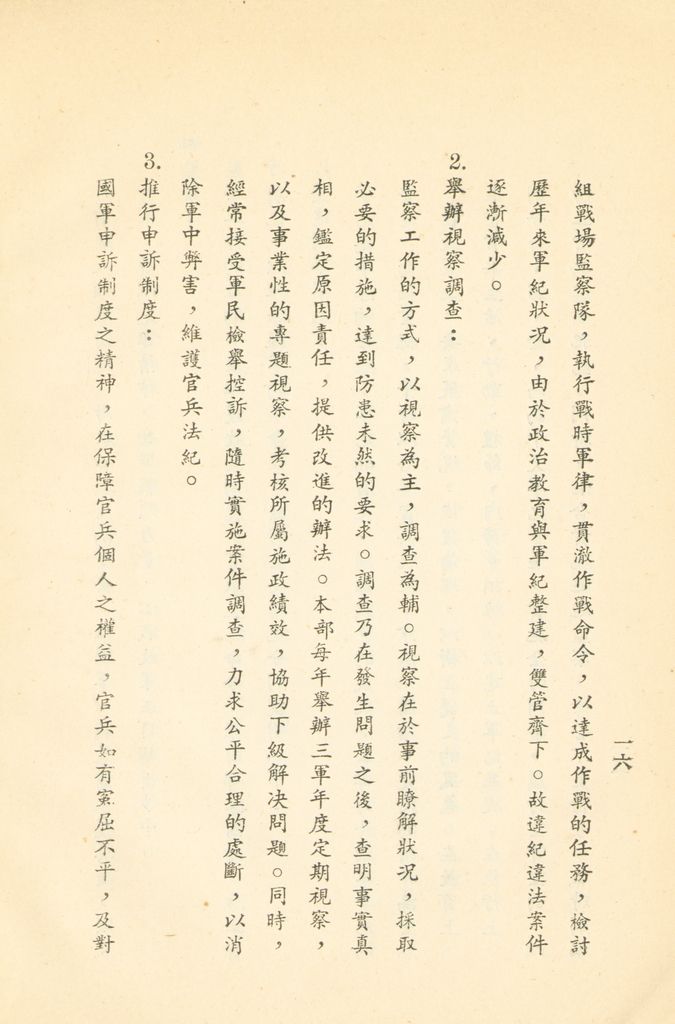 一六
組戰場監察隊，執行戰時軍律，貫澈作戰命令，以達成作戰的任務，檢討
歷年來軍紀狀況，由於政治教育與軍紀整建，雙管齊下。故違紀違法案件
逐漸減少。
2. 舉辦視察調查：
監察工作的方式，以視察為主，調查為輔。視察在於事前瞭解狀況，採取
必要的措施，達到防患未然的要求。調查乃在發生問題之後，查明事實真
相，鑑定原因責任，提供改進的辦法。本部每年舉辦三軍年度定期視察，
以及事業性的專題視察，考核所屬施政績效，協助下級解決問題。同時，
經常接受軍民檢舉控訴，隨時實施案件調查，力求公平合理的處斷，以消
除軍中弊害，維護官兵法紀。
3. 推行申訴制度：
國軍申訴制度之精神，在保障官兵個人之權益，官兵如有冤屈不平，及對